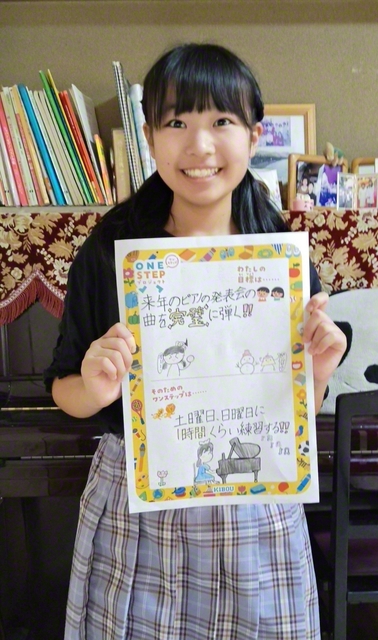 ONE
STEP
プロジェクト
わたしの
目標は……
来年のピアノの発表会の
曲を"完璧"に弾く!!
そのための
ワンステップは……
土曜日、日曜日に
1時間くらい練習する!!
KIBOU